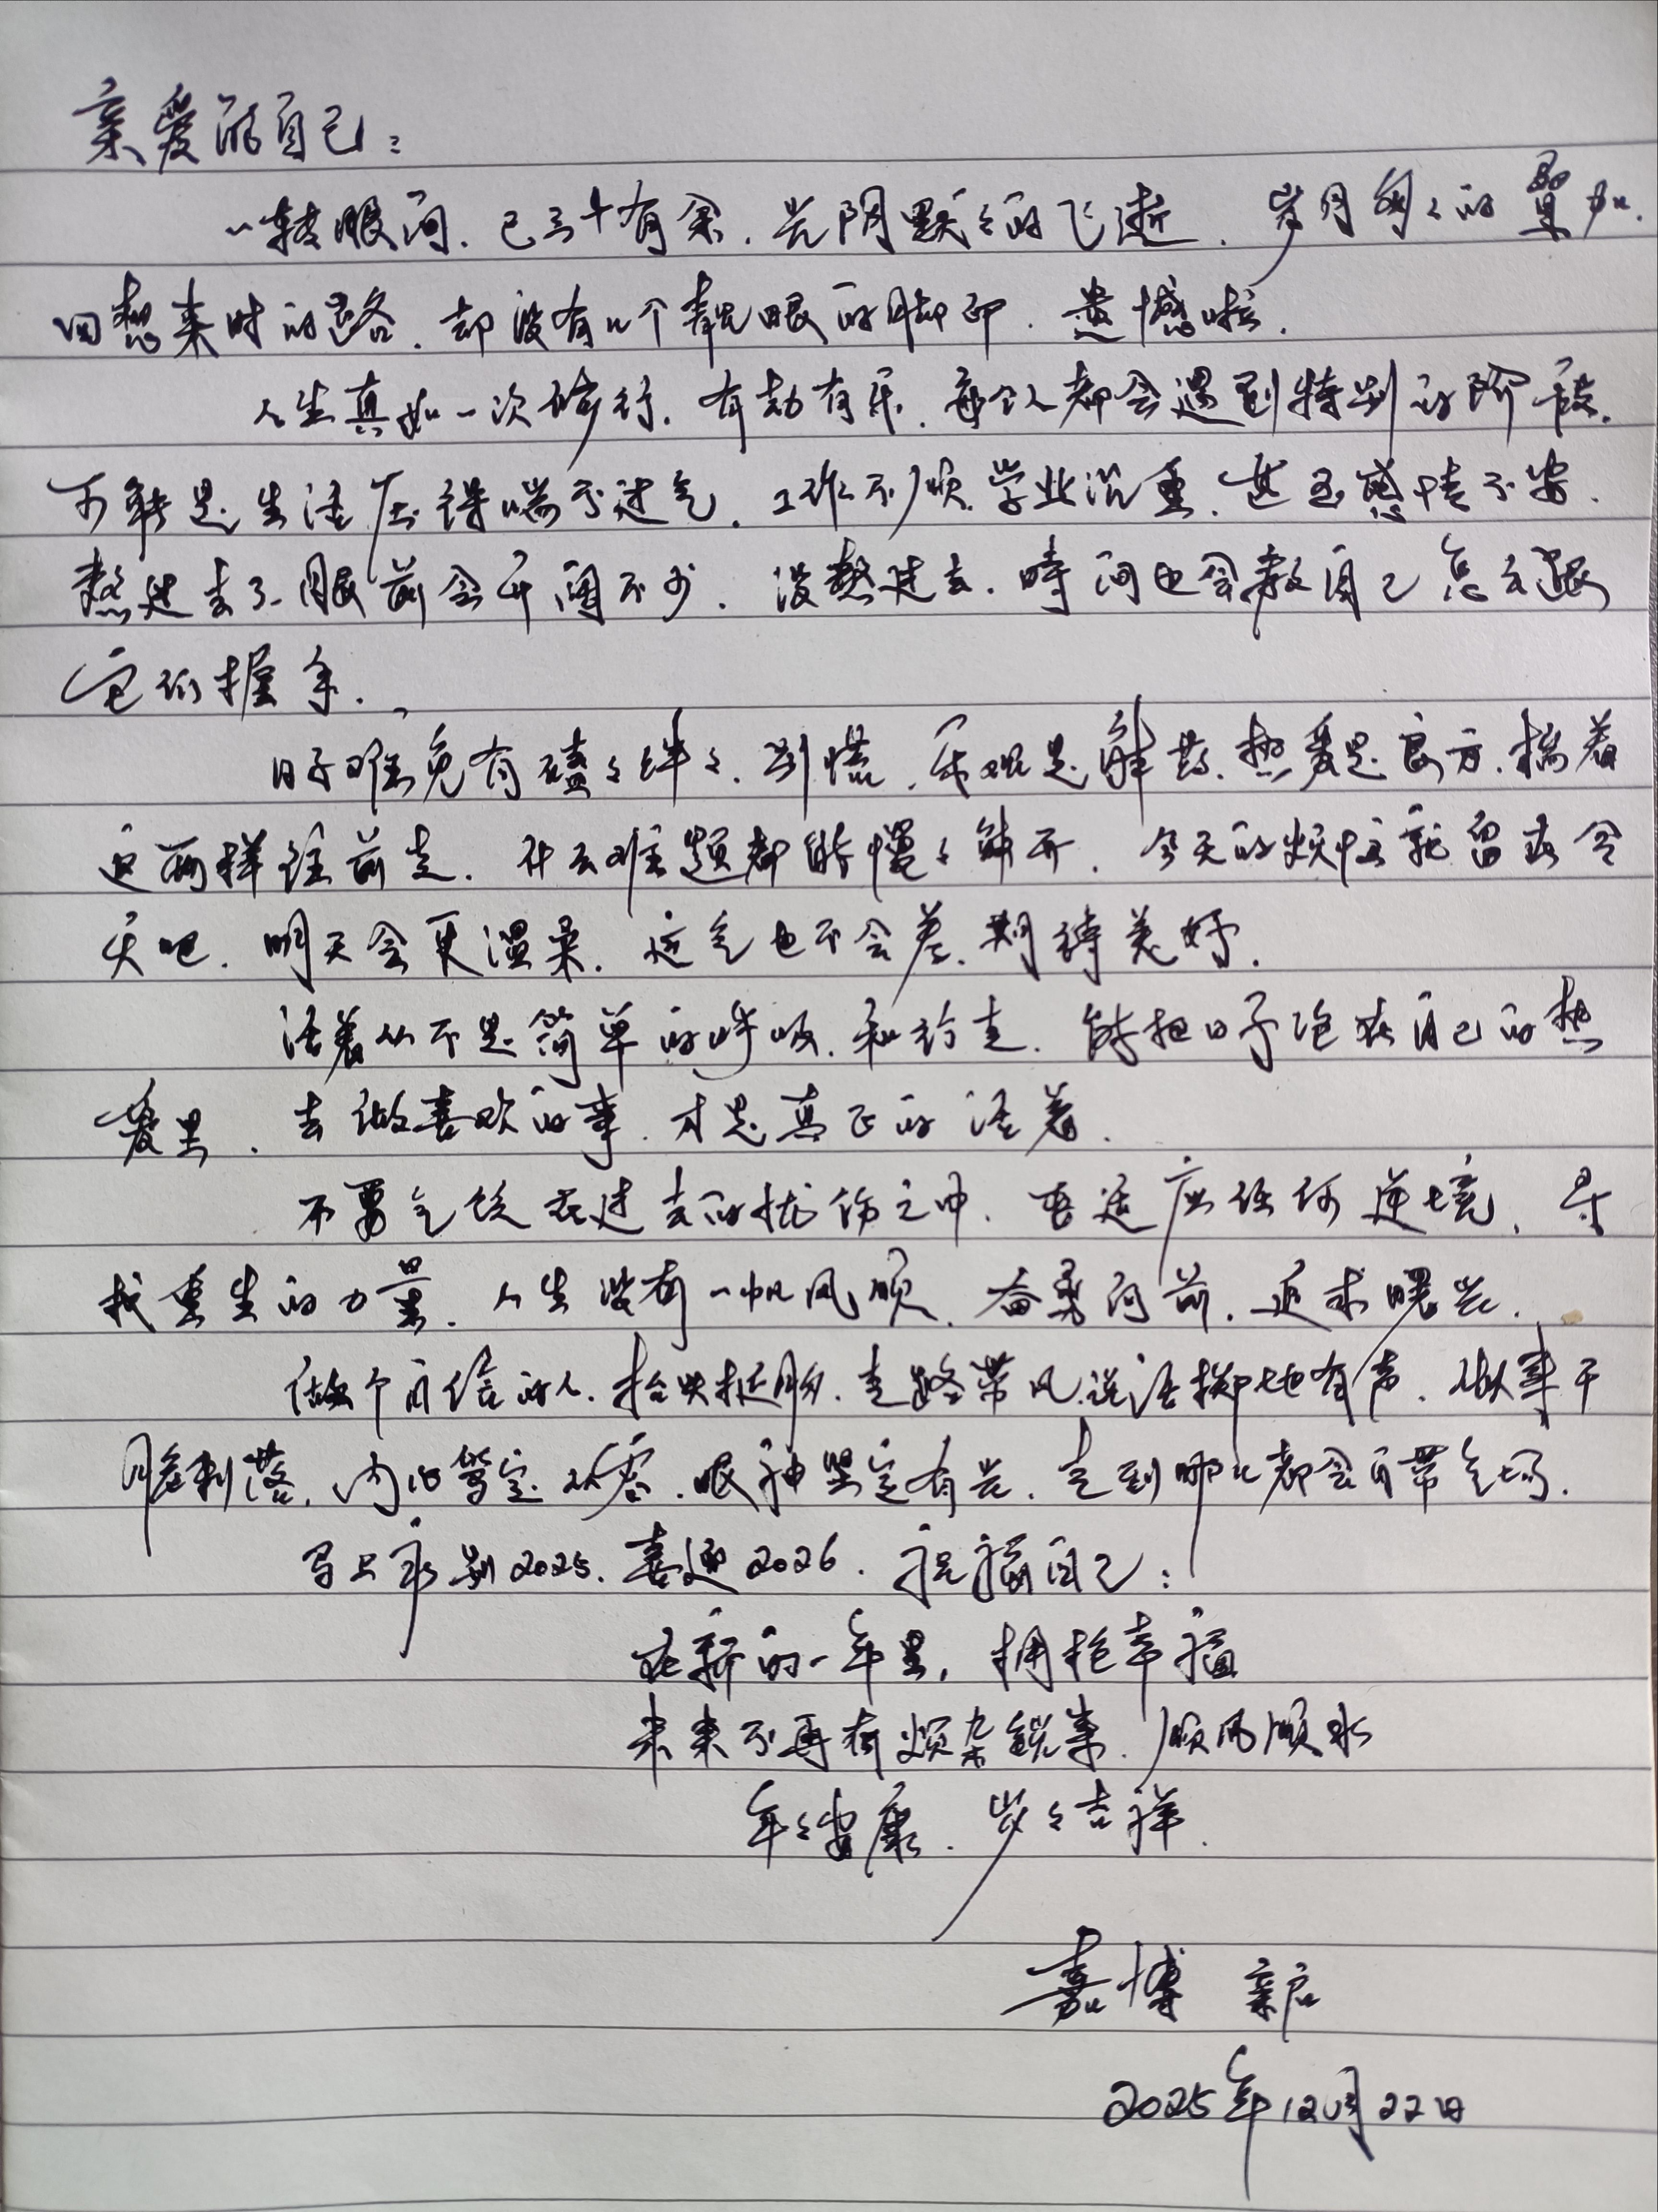 亲爱的自己：
一转眼间，已三十有余，光阴默々的飞逝，岁月匆々的叠加，
回想来时的路，却没有几个靓眼的脚印，遗憾啦，
人生真如一次修行，有劫有乐，每个人都会遇到特别的阶段，
可能是生活压得喘不过气，工作不顺，学业沉重，甚至感情不安，
熬过去了，眼前会开阔不少，没熬过去，時间也会教自己怎么跟
它们握手，
日子难免有磕々绊々，别慌，乐观是解药，热爱是良方，揣着
这两样往前走，什么难题都能慢々解开，今天的烦恼就留在今
天吧，明天会更温柔，运气也不会差，期待美好，
活着从不是简单的呼吸，和行走，能把日子泡在自己的热
爱里，去做喜欢的事，才是真正的活着，
不要气馁在过去的忧伤之中，要适应任何逆境，寻
找重生的力量，人生没有一帆风顺，奋勇向前，追求曙光，
做个自信的人，抬头挺胸，走路带风，说话掷地有声，做事干
脆利落，内心笃定从容，眼神坚定有光，走到哪儿都会自带气场，
马上永别2025，喜迎2026，祝福自己：
在新的一年里，拥抱幸福
未来不再有烦杂锁事，顺风顺水
年々安康，岁々吉祥，
嘉博 亲启
2025年12月22日